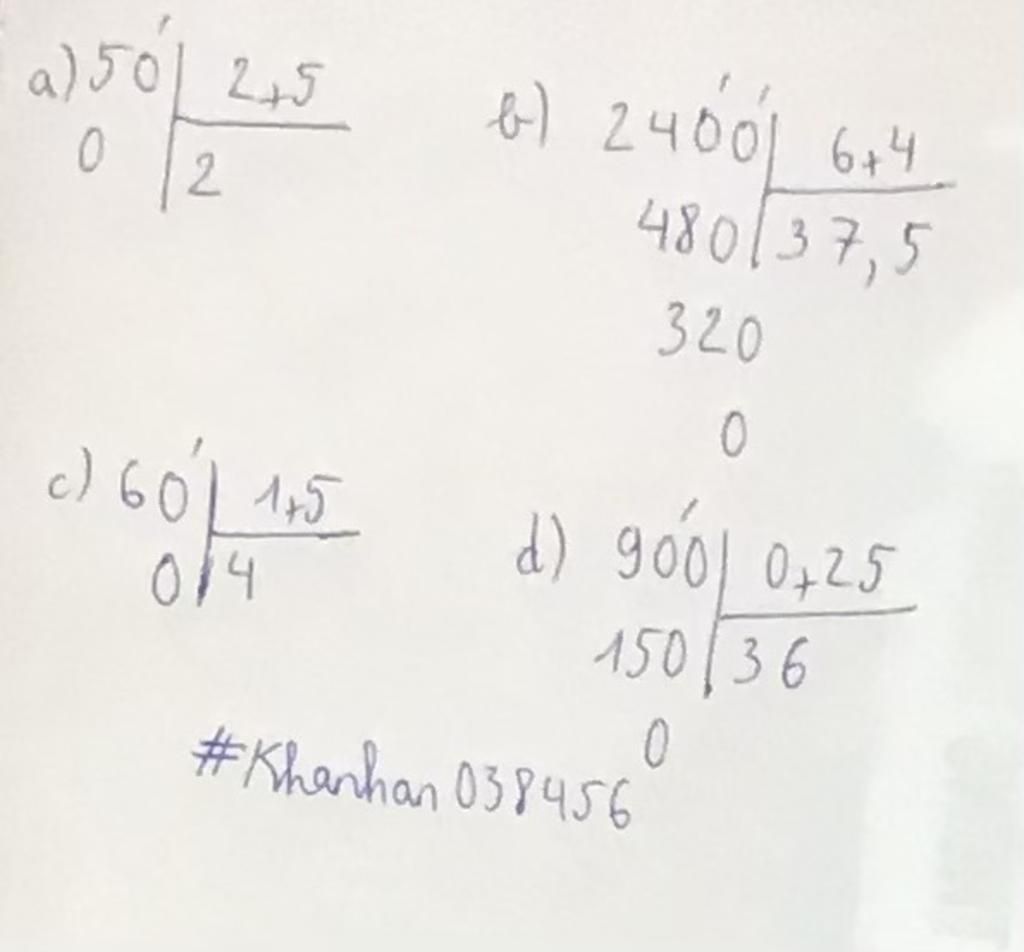 a) 50 2,5
0 2
b) 2400 6,4
480 37,5
320
0
c) 60 1,5
0 4
d) 900 0,25
150 36
0
#Khanhan038456